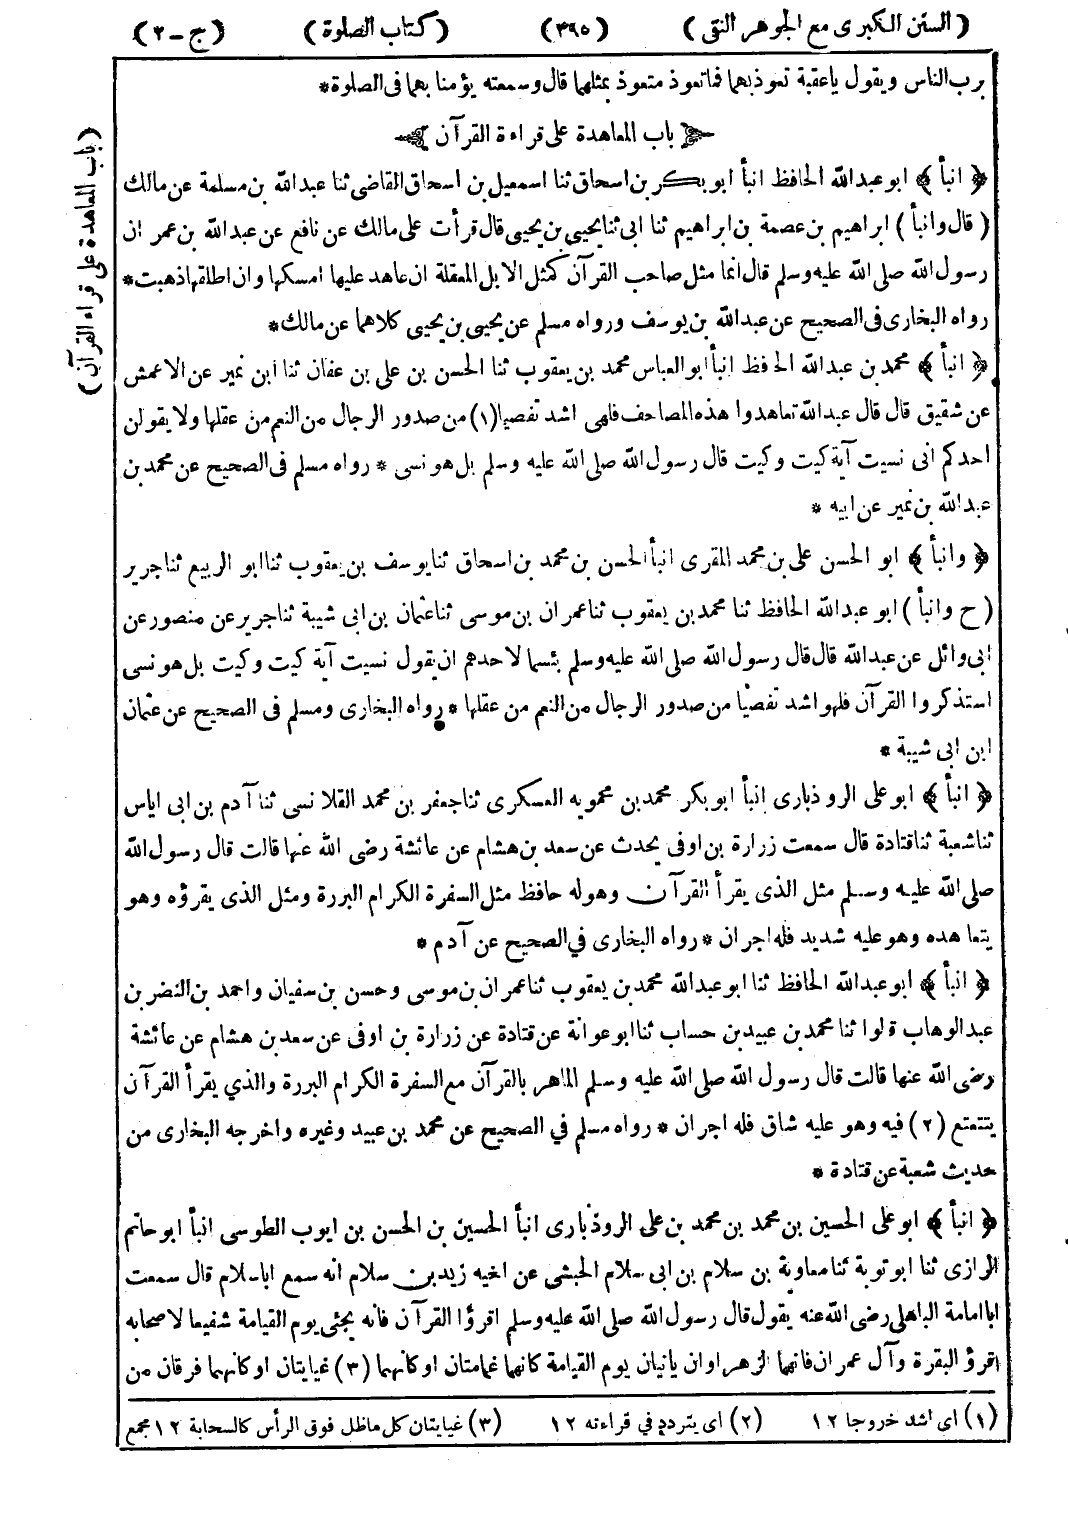 (السنن الكبرى مع الجوهر النقى) (٣٩٥) (كتاب الصلوة) (ج-٢)
برب الناس ويقول ياعقبة تعوذ بهما فما تعوذ متعوذ بمثلهما قال وسمعته يؤمنا بهما فى الصلوة*
باب المعاهدة على قراءة القرآن
﴿ انبأ ﴾ ابو عبد الله الحافظ انبأ ابو بكر بن اسحاق ثنا اسمعيل بن اسحاق القاضى ثنا عبد الله بن مسلمة عن مالك
(قال وانبأ) ابراهيم بن عصمة بن ابراهيم ثنا ابى ثنا يحيى بن يحيى قال قرأت على مالك عن نافع عن عبد الله بن عمر ان
رسول الله صلى الله عليه وسلم قال انما مثل صاحب القرآن كمثل الابل المعقلة ان عاهد عليها امسكها وان اطلقها ذهبت*
رواه البخارى فى الصحيح عن عبد الله بن يوسف ورواه مسلم عن يحيى بن يحيى كلاهما عن مالك*
﴿ انبأ ﴾ محمد بن عبد الله الحافظ انبأ ابو العباس محمد بن يعقوب ثنا الحسن بن على بن عفان ثنا ابن نمير عن الاعمش
عن شقيق قال قال عبد الله تعاهدوا هذه المصاحف فلهى اشد تفصيا (١) من صدور الرجال من النعم من عقلها ولا يقولن
احدكم انى نسيت آية كيت وكيت قال رسول الله صلى الله عليه وسلم بل هو نسى * رواه مسلم فى الصحيح عن محمد بن
عبد الله بن نمير عن ابيه *
﴿ وانبأ ﴾ ابو الحسن على بن محمد المقرى انبأ الحسن بن محمد بن اسحاق ثنا يوسف بن يعقوب ثنا ابو الربيع ثنا جرير
(ح وانبأ) ابو عبد الله الحافظ ثنا محمد بن يعقوب ثنا عمران بن موسى ثنا عثمان بن ابى شيبة ثنا جرير عن منصور عن
ابى وائل عن عبد الله قال قال رسول الله صلى الله عليه وسلم بئسما لاحدهم ان يقول نسيت آية كيت وكيت بل هو نسى
استذكروا القرآن فلهو اشد تفصيا من صدور الرجال من النعم من عقلها * رواه البخارى ومسلم فى الصحيح عن عثمان
ابن ابى شيبة *
﴿ انبأ ﴾ ابو على الروذبارى انبأ ابو بكر محمد بن محمويه العسكرى ثنا جعفر بن محمد القلانسى ثنا آدم بن ابى اياس
ثنا شعبة ثنا قتادة قال سمعت زرارة بن اوفى يحدث عن سعد بن هشام عن عائشة رضى الله عنها قالت قال رسول الله
صلى الله عليه وسلم مثل الذى يقرأ القرآن وهو له حافظ مثل السفرة الكرام البررة ومثل الذى يقرؤه وهو
يتعاهده وهو عليه شديد فله اجران * رواه البخارى في الصحيح عن آدم *
﴿ انبأ ﴾ ابو عبد الله الحافظ ثنا ابو عبد الله محمد بن يعقوب ثنا عمران بن موسى وحسن بن سفيان واحمد بن النضر بن
عبد الوهاب قالوا ثنا محمد بن عبيد بن حساب ثنا ابو عوانة عن قتادة عن زرارة بن اوفى عن سعد بن هشام عن عائشة
رضى الله عنها قالت قال رسول الله صلى الله عليه وسلم الماهر بالقرآن مع السفرة الكرام البررة والذي يقرأ القرآن
يتتعتع (٢) فيه وهو عليه شاق فله اجران * رواه مسلم في الصحيح عن محمد بن عبيد وغيره واخرجه البخارى من
حديث شعبة عن قتادة *
﴿ انبأ ﴾ ابو على الحسين بن محمد بن محمد بن على الروذبارى انبأ الحسين بن الحسن بن ايوب الطوسى انبأ ابو حاتم
الرازى ثنا ابو توبة ثنا معاوية بن سلام بن ابى سلام الحبشى عن اخيه زيد بن سلام انه سمع ابا سلام قال سمعت
ابا امامة الباهلى رضى الله عنه يقول قال رسول الله صلى الله عليه وسلم اقرؤا القرآن فانه يجئى يوم القيامة شفيعا لاصحابه
اقرؤ البقرة وآل عمران فانهما الزهراوان يأتيان يوم القيامة كانهما غمامتان او كانهما (٣) غيايتان او كانهما فرقان من
(١) اى اشد خروجا ١٢ (٢) اى يتردد في قراءته ١٢ (٣) غيايتان كل ما ظل فوق الرأس كالسحابة ١٢ مجمع
(باب المعاهدة على قراءة القرآن)